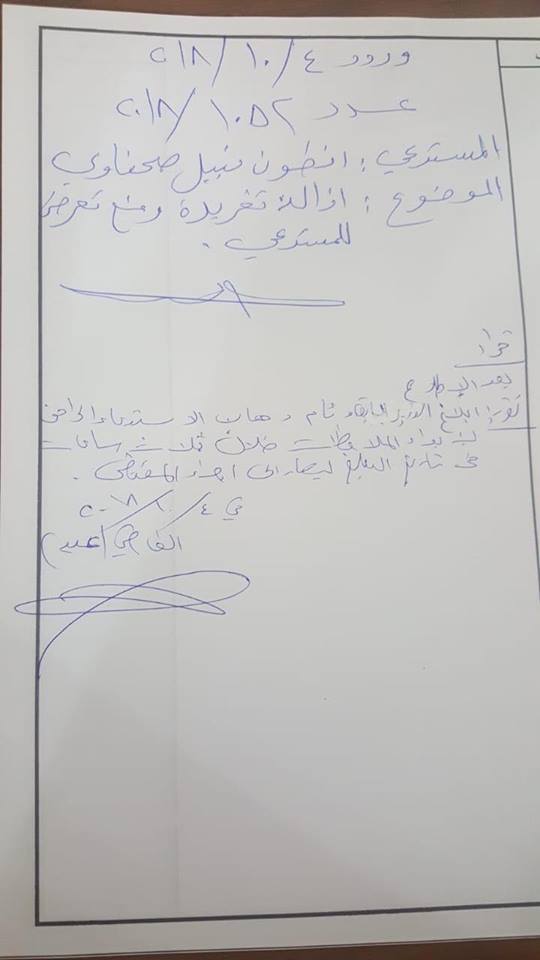 ورود ٤/١٠/٢٠١٨
عدد ١٠٥٢/٢٠١٨
المستدعي: انطون نبيل صحناوي
الموضوع: ازالة تغريدة ومنع تعرض
للمستدعي.
قرار
بعد الاطلاع
نقرر ابلاغ الوزير السابق وئام وهاب الاستدعاء الحاضر
لإبداء الملاحظات خلال ثلاث ساعات
من تاريخ التبلغ ليصار الى اجراء المقتضى.
في ٤/١٠/٢٠١٨
القاضي